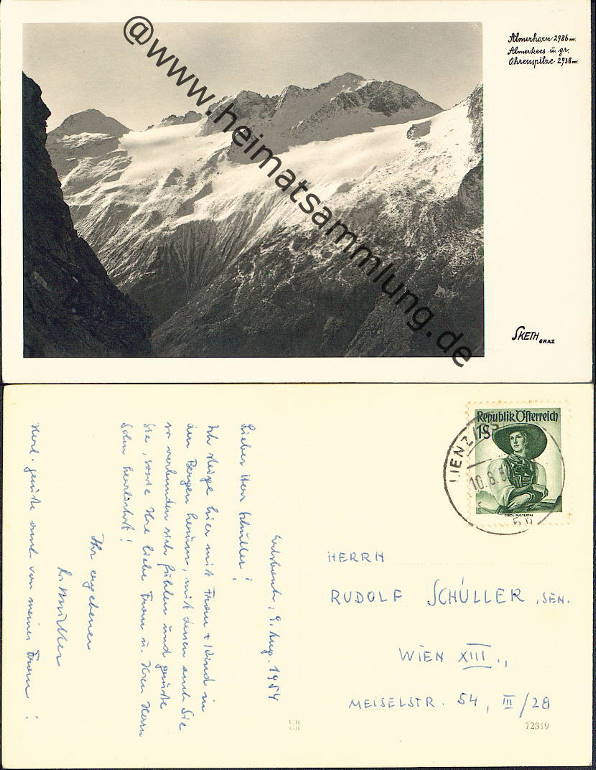 Almerhorn 2986 m.
Almerkees u. gr.
Ohrenspitze 2938 m
@www.heimatsammlung.de
SKETH GRAZ
Republik Österreich
1S
LIENZ
10.8.5
9. Aug. 1954
Lieber Herr Schüller!
Ich steige hier mit Frau + Kind in
den Bergen herum, mit denen auch Sie
so verbunden sich fühlen und grüße
Sie, sowie Ihre liebe Frau u. Ihren Herrn
Sohn herzlichst!
Ihr ergebener
Herzl. Grüße auch von meiner Frau!
HERRN
RUDOLF SCHÜLLER, SEN.
WIEN XIII.,
MEISELSTR. 54, III/28
72839